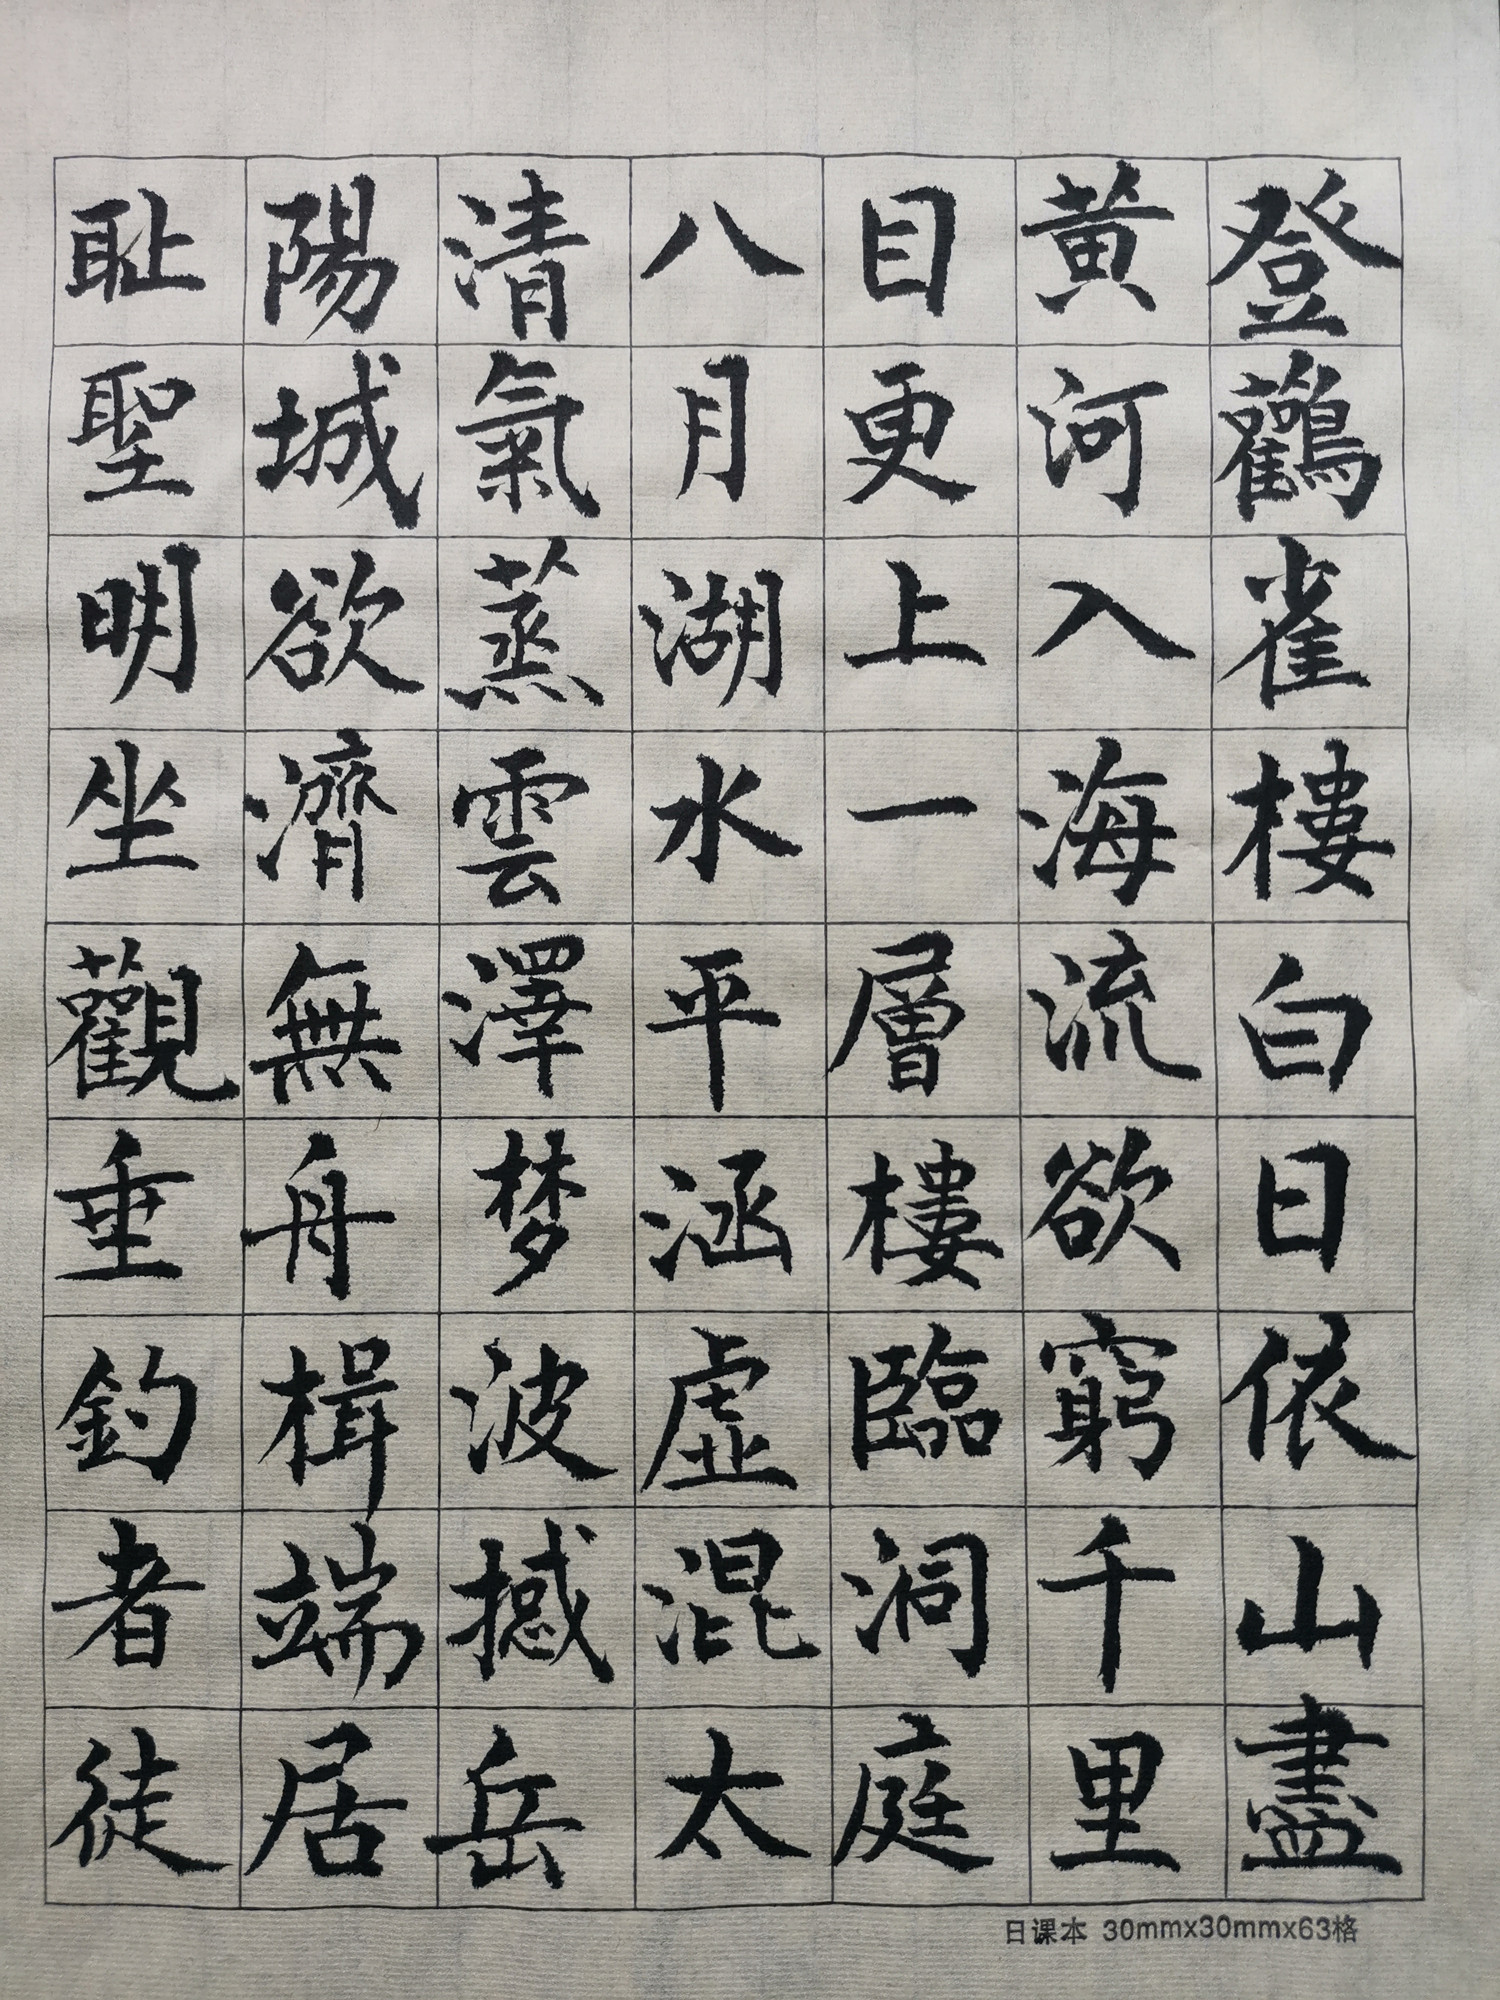 登鸛雀樓白日依山盡
黄河入海流欲窮千里
目更上一層樓臨洞庭
八月湖水平涵虛混太
清氣蒸雲澤梦波撼岳
陽城欲濟無舟楫端居
耻聖明坐觀垂釣者徒
日课本 30mmx30mmx63格